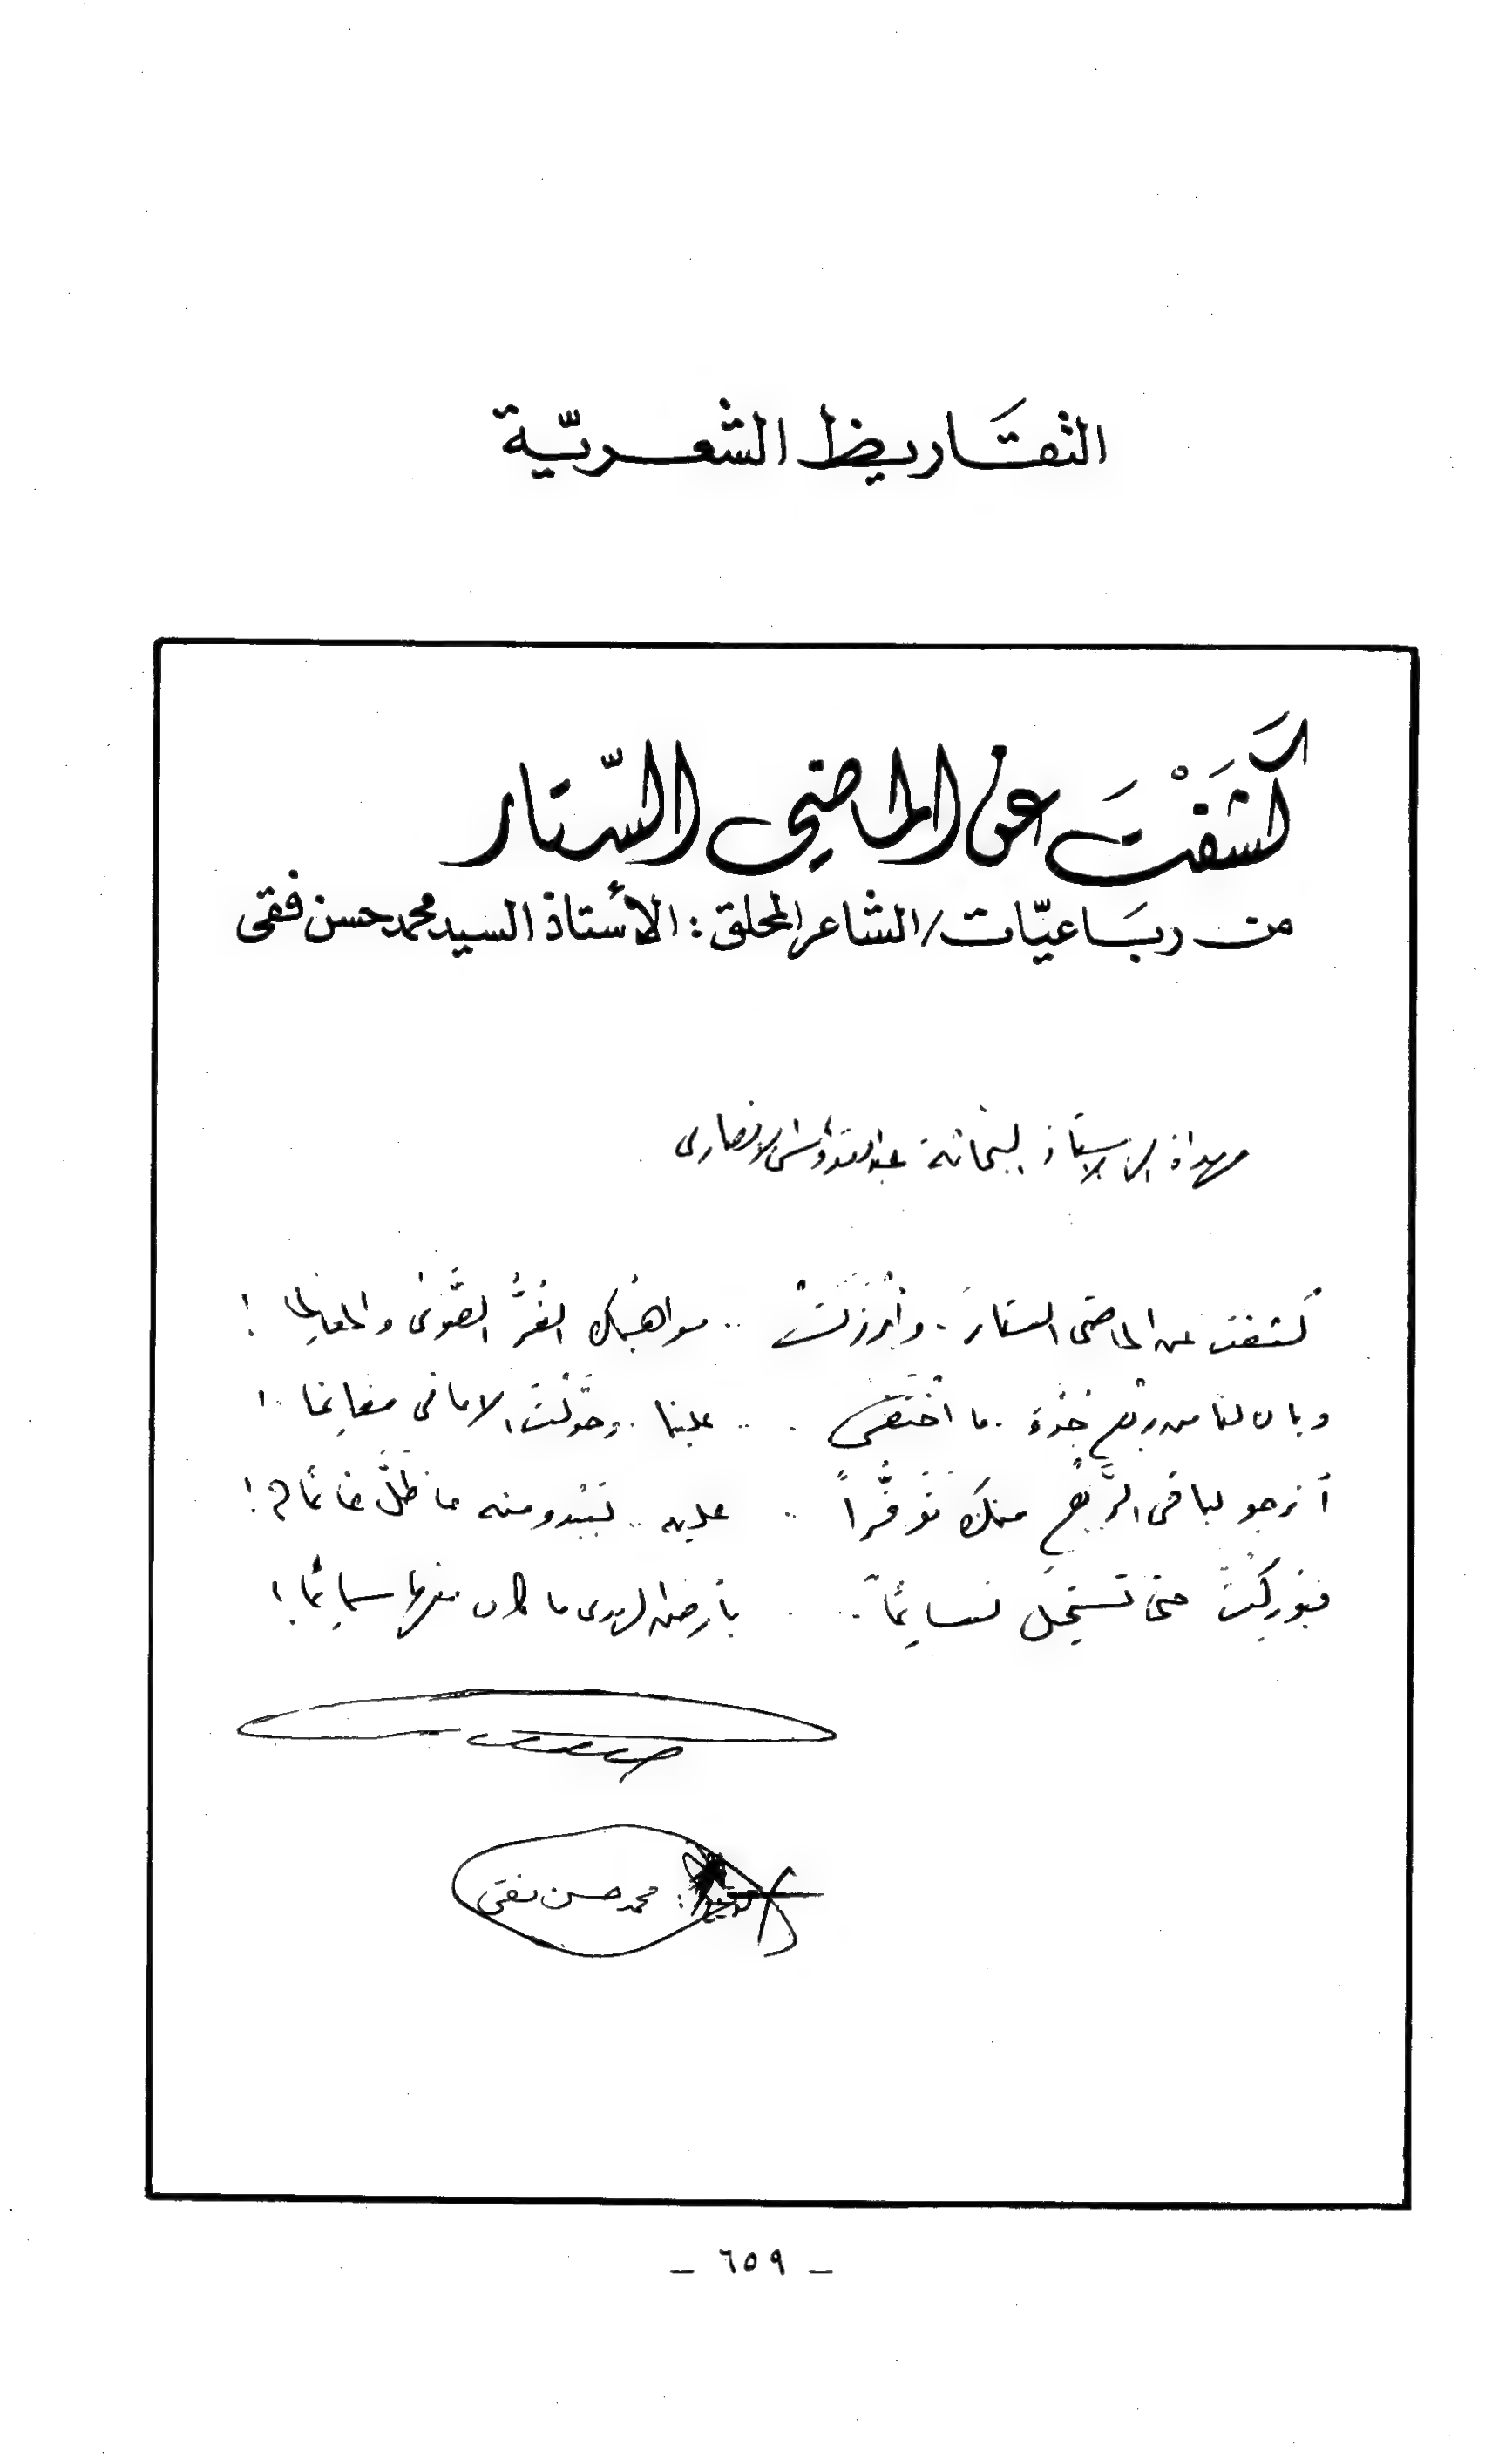 التقَاريظ الشعريّة
كَشَفْتَ عن الماضي السّتار
من ربَاعيّات/الشاعر المحلق: الأستاذ السيد محمد حسن فقى
مهداة الى الاستاذ البحاثة عبدالقدوس الانصارى
كشفت عن الماضى الستارَ . وأبْرَزَتْ .. مواهبُك الغُرُّ الصُّوَى والمعالما !
وبان لنا من رَبْعِ جُدَّة . ما اخْتَفَى . .. علينا .. وحَوَّلْتَ الامانى مغانما .. !
أنرجو لباقى الرَّبْعِ منك تَوَفُّراً .. عليه .. لِيَبْدو منه ما ظَلَّ غائما ؟ !
فبُورِكْتَ حتى تستحيلَ نسائماً .. . بأرض الهدى ما كان منها سمائما !
: محمد حسن فقى
ـ ٦٥٩ ـ